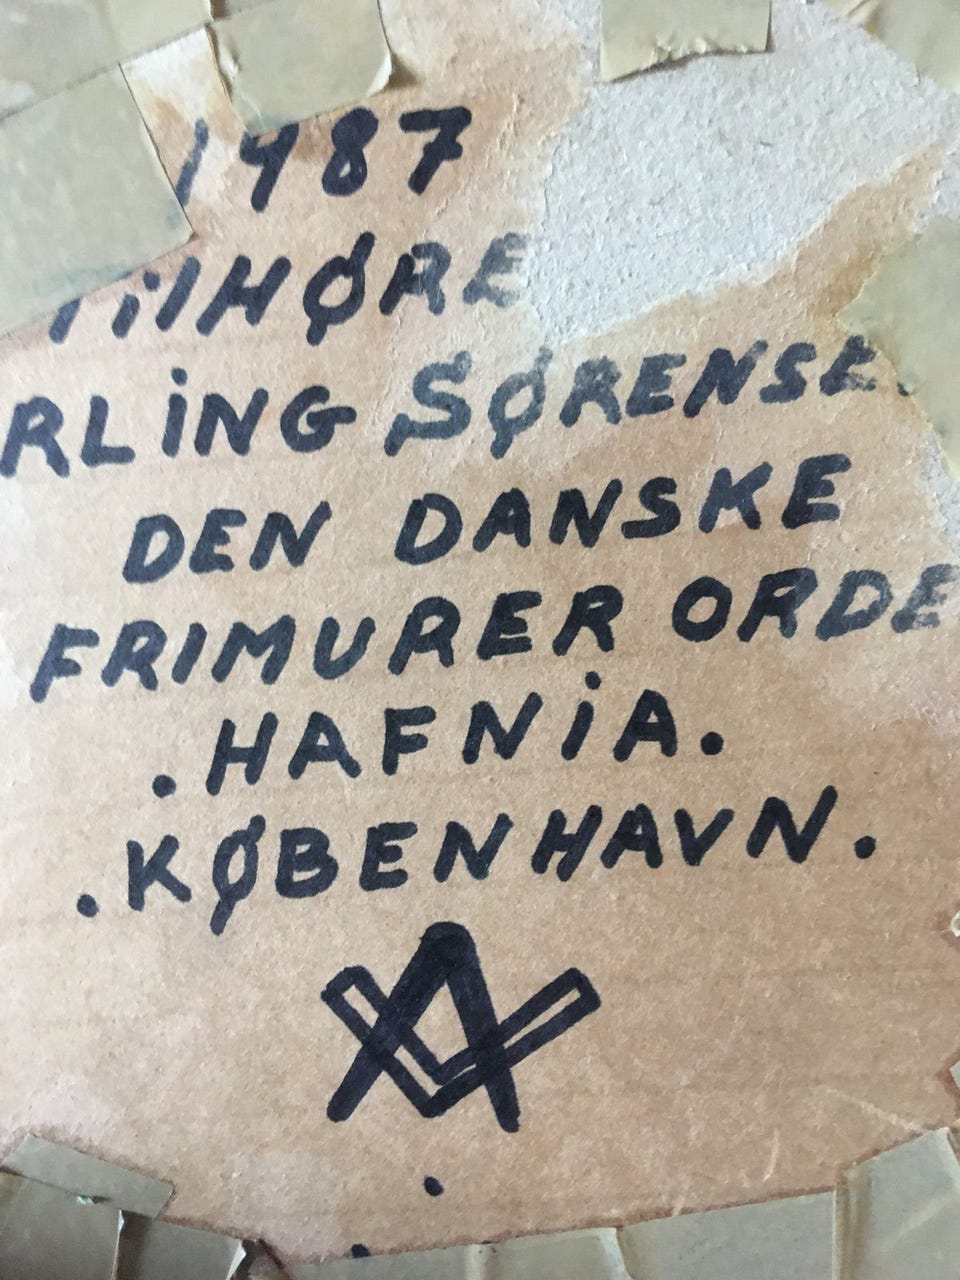 1987
TilHØRE
RLiNG SØRENSE
DEN DANSKE
FRIMURER ORDE
.HAFNiA.
.KØBENHAVN.